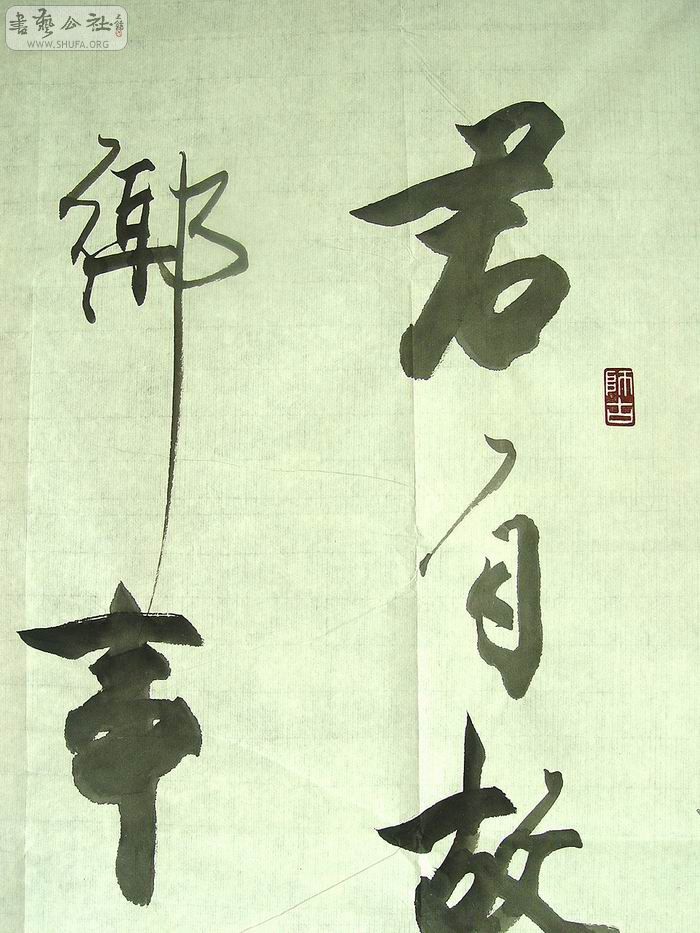 君自故
鄉事
師古
書藝公社
WWW.SHUFA.ORG